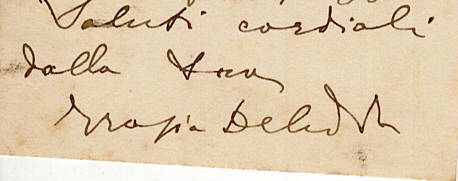 Saluti cordiali
dalla Sua
Grazia Deledda